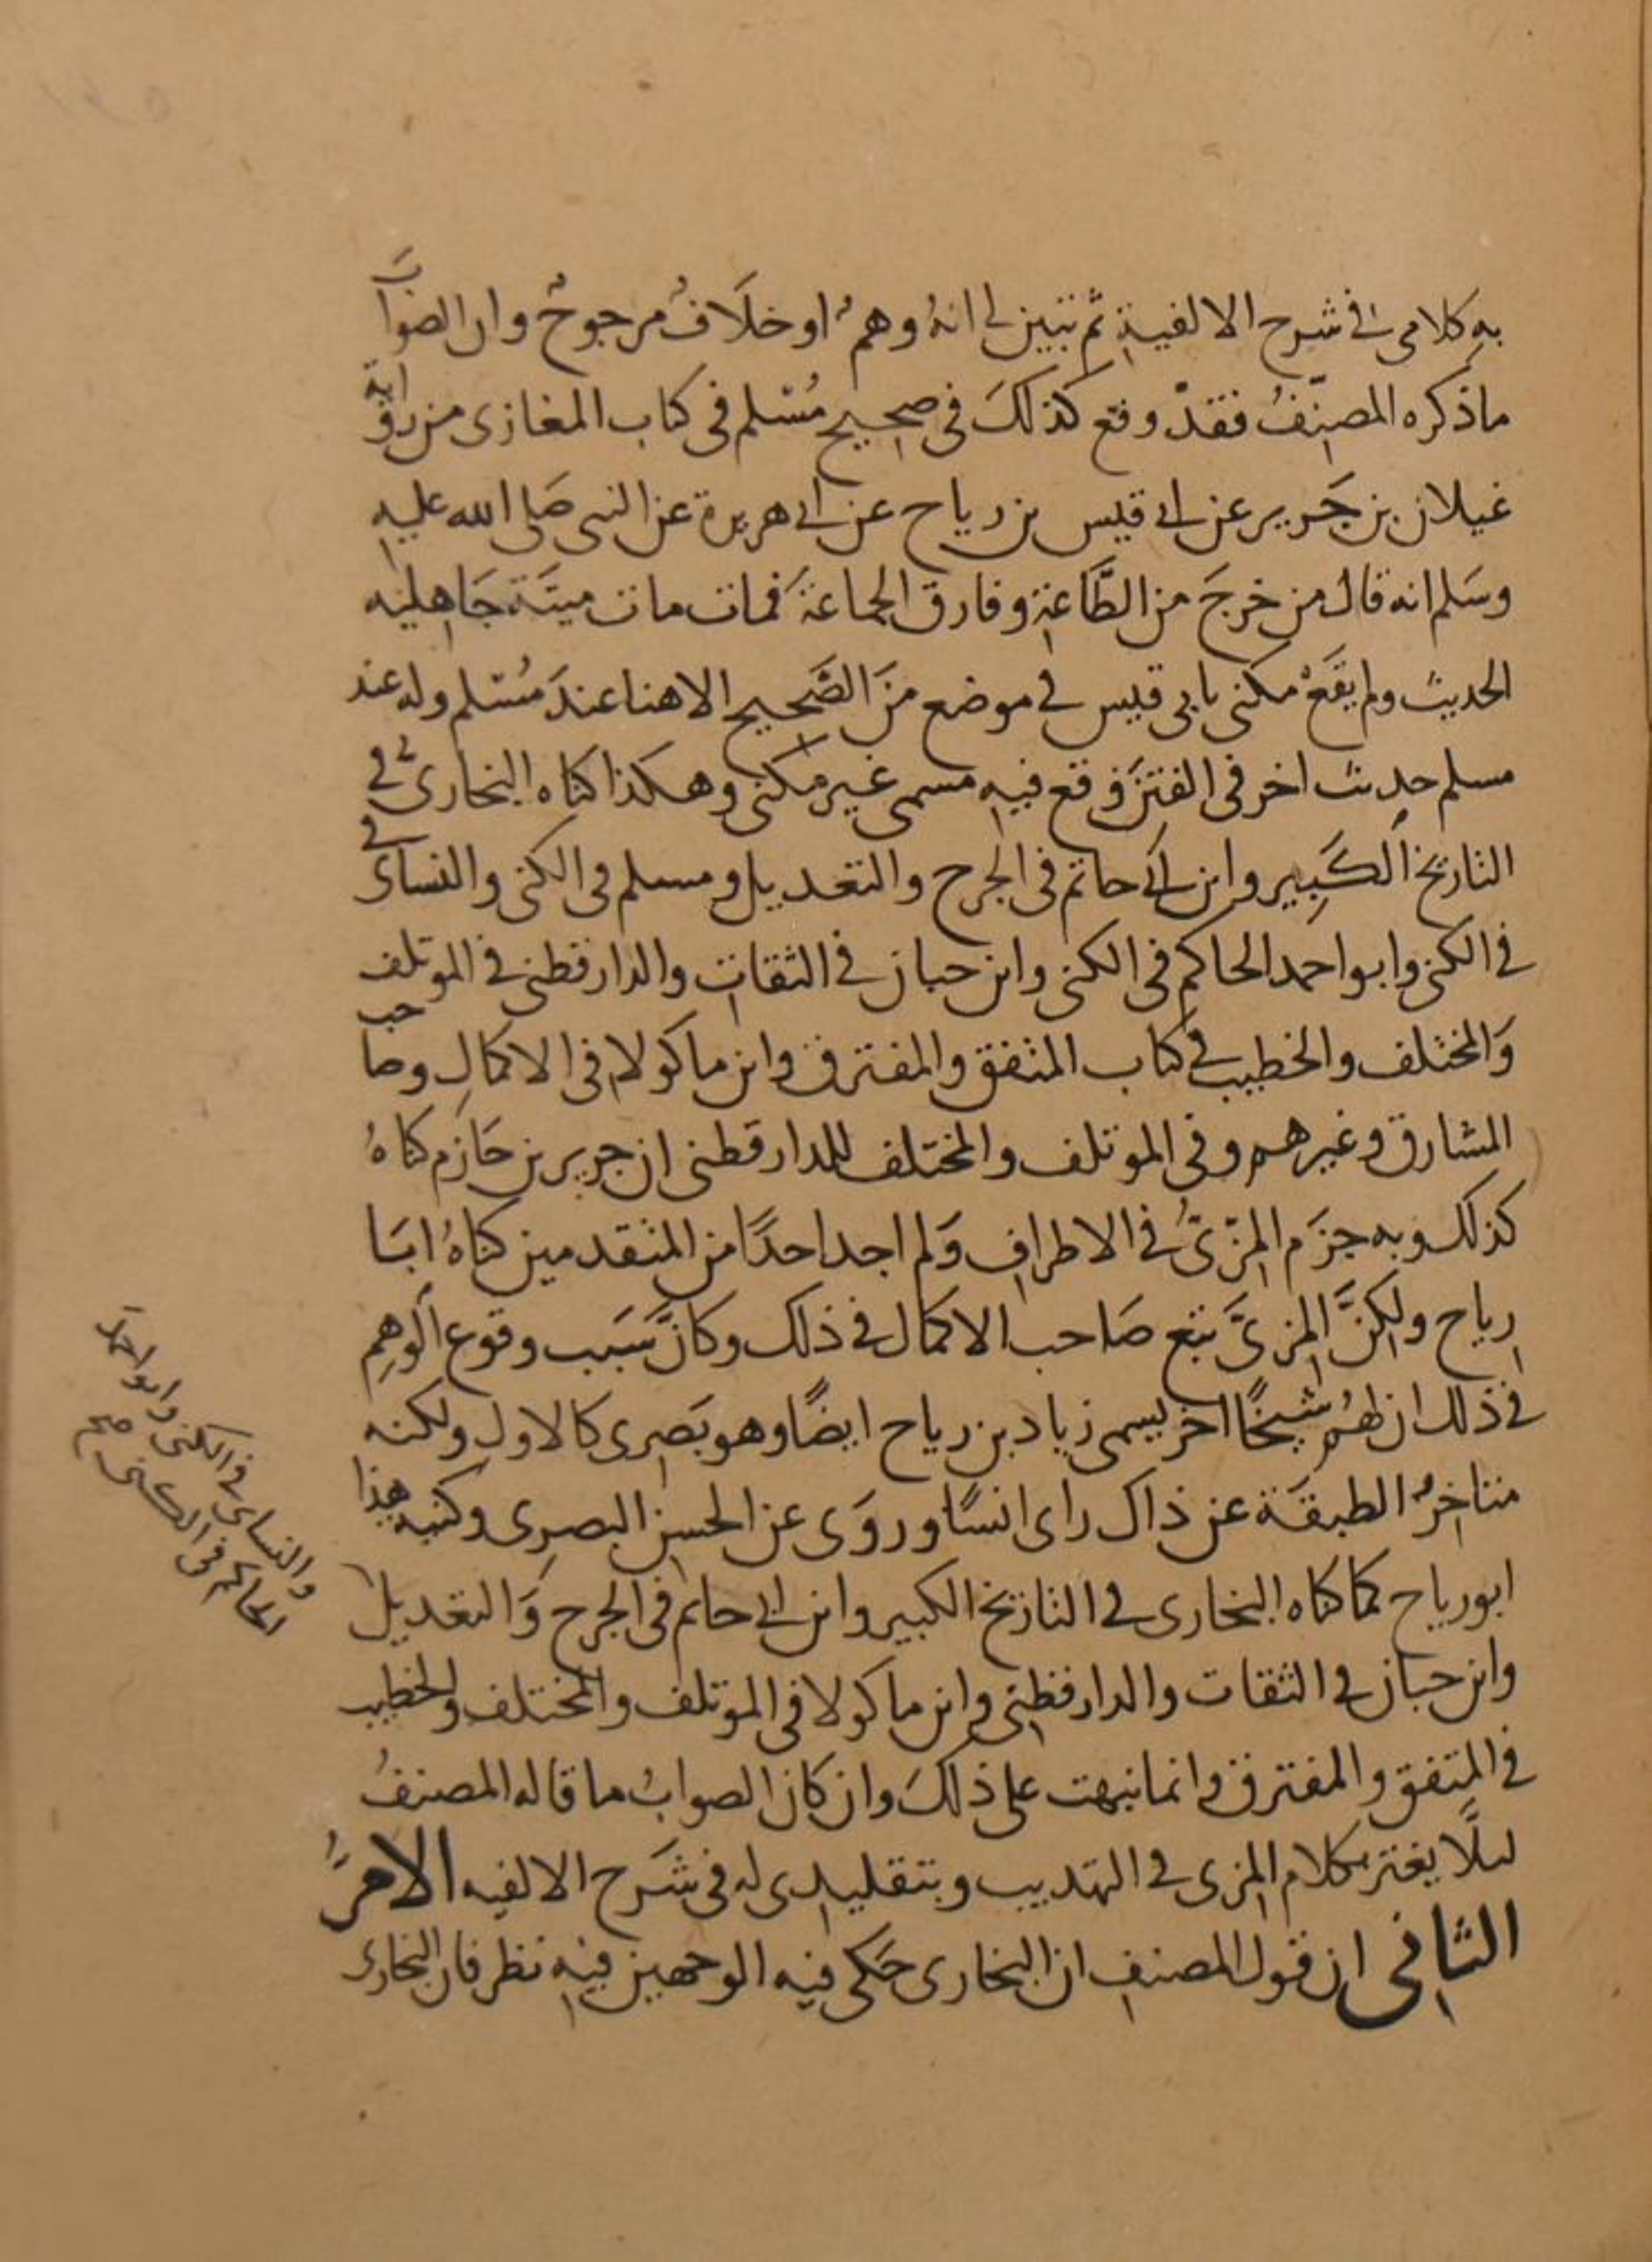 به كلامى فى شرح الالفية ثم تبين لى انهُ وهمٌ او خلَافٌ مرجوحٌ وان الصَوابَ
ماذكره المصنّفُ فقدْ وقع كذلكَ فى صحيح مُسْلم فى كتاب المغازى من رواية
غيلان بن جَرير عن ابى قيس بن رياح عن ابى هريرة عن النبى صَلى الله عليه
وسَلم انه قال من خرجَ من الطَّاعَةِ وفارق الجماعَةَ فمات مات ميتَة جَاهِليه
الحديث ولم يقَعْ مكنى بابى قيس فى موضع منَ الصَّحيح الا هنا عندَ مُسْلم وله عند
مسلم حديث اخر فى الفتن وقع فيه مسمى غير مكنى وهكذا كناه البخارىُّ فى
التاريخ الكَبِير وابن ابى حاتم فى الجرح والتعديل ومسلم فى الكنى والنساى فى
فى الكنى وابو احمد الحاكم فى الكنى وابن حبان فى الثقات والدارقطنى فى الموتلف
وَالمختلف والخطيب فى كتاب المتفق والمفترق وابن ماكولا فى الاكمالِ وصاحب
المشارق وغيرهم وفى الموتلف والمختلف للدارقطنى ان جرير بن حَازم كناهُ
كذلك وبه جزَم المزّىُّ فى الاطراف وَلم اجد احدًا من المتقدمين كناهُ ابَا
رياح ولكنَّ المزىَّ تبع صَاحب الاكمال فى ذلك وكانَ سَبَب وقوع الوهِمِ
فى ذلك ان لهُم شيخًا اخر يسمى زياد بن رياح ايضًا وهو بَصرى كالاول ولكنه
متاخِرُ الطبقَة عن ذاك راى انسًا وروَى عن الحسن البصرى وكنيه هذا
ابو رياح كما كناه البخارى فى التاريخ الكبير وابن ابى حاتم فى الجرح وَالتعديل
وابن حبان فى الثقات والدارقطنى وابن ماكولا فى الموتلف والمختلف والخطيب
فى المتفق والمفترق وانما نبهت على ذلكَ وان كان الصوابُ ما قاله المصنفُ
ليلًا يغتر بكلام المزى فى التهذيب وبتقليدى له فى شَرح الالفيه الامرُ
الثانى ان قول المصنف ان البخارى حَكى فيه الوجهين فيه نظر فان البخارى
والنساى فى الكنى وابو احمد
الحاكم فى الكنى صح